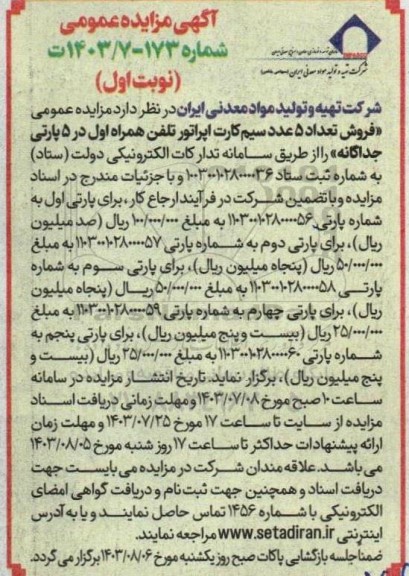 آگهی مزایده عمومی
شماره ۱۷۳-۱۴۰۳/۷ت
(نوبت اول)
شرکت تهیه و تولید مواد معدنی ایران
شرکت تهیه و تولید مواد معدنی ایران در نظر دارد مزایده عمومی
«فروش تعداد ۵ عدد سیم کارت اپراتور تلفن همراه اول در ۵ پارتی
جداگانه» را از طریق سامانه تدارکات الکترونیکی دولت (ستاد)
به شماره ثبت ستاد ۱۰۰۳۰۰۱۰۲۸۰۰۰۰۳۶ و با جزئیات مندرج در اسناد
مزایده و با تضمین شرکت در فرآیند ارجاع کار، برای پارتی اول به
شماره پارتی ۱۱۰۳۰۰۱۰۲۸۰۰۰۰۵۶ به مبلغ ۱۰۰/۰۰۰/۰۰۰ ریال (صد میلیون
ریال)، برای پارتی دوم به شماره پارتی ۱۱۰۳۰۰۱۰۲۸۰۰۰۰۵۷ به مبلغ
۵۰/۰۰۰/۰۰۰ ریال (پنجاه میلیون ریال)، برای پارتی سوم به شماره
پارتی ۱۱۰۳۰۰۱۰۲۸۰۰۰۰۵۸ به مبلغ ۵۰/۰۰۰/۰۰۰ ریال (پنجاه میلیون
ریال)، برای پارتی چهارم به شماره پارتی ۱۱۰۳۰۰۱۰۲۸۰۰۰۰۵۹ به مبلغ
۲۵/۰۰۰/۰۰۰ ریال (بیست و پنج میلیون ریال)، برای پارتی پنجم به
شماره پارتی ۱۱۰۳۰۰۱۰۲۸۰۰۰۰۶۰ به مبلغ ۲۵/۰۰۰/۰۰۰ ریال (بیست و
پنج میلیون ریال)، برگزار نماید. تاریخ انتشار مزایده در سامانه
ساعت ۱۰ صبح مورخ ۱۴۰۳/۰۷/۰۸ و مهلت زمانی دریافت اسناد
مزایده از سایت تا ساعت ۱۷ مورخ ۱۴۰۳/۰۷/۲۵ و مهلت زمان
ارائه پیشنهادات حداکثر تا ساعت ۱۷ روز شنبه مورخ ۱۴۰۳/۰۸/۰۵
می باشد. علاقه مندان شرکت در مزایده می بایست جهت
دریافت اسناد و همچنین جهت ثبت نام و دریافت گواهی امضای
الکترونیکی با شماره ۱۴۵۶ تماس حاصل نمایند و یا به آدرس
اینترنتی www.setadiran.ir مراجعه نمایند.
ضمنا جلسه بازگشایی پاکات صبح روز یکشنبه مورخ ۱۴۰۳/۰۸/۰۶ برگزار می گردد.